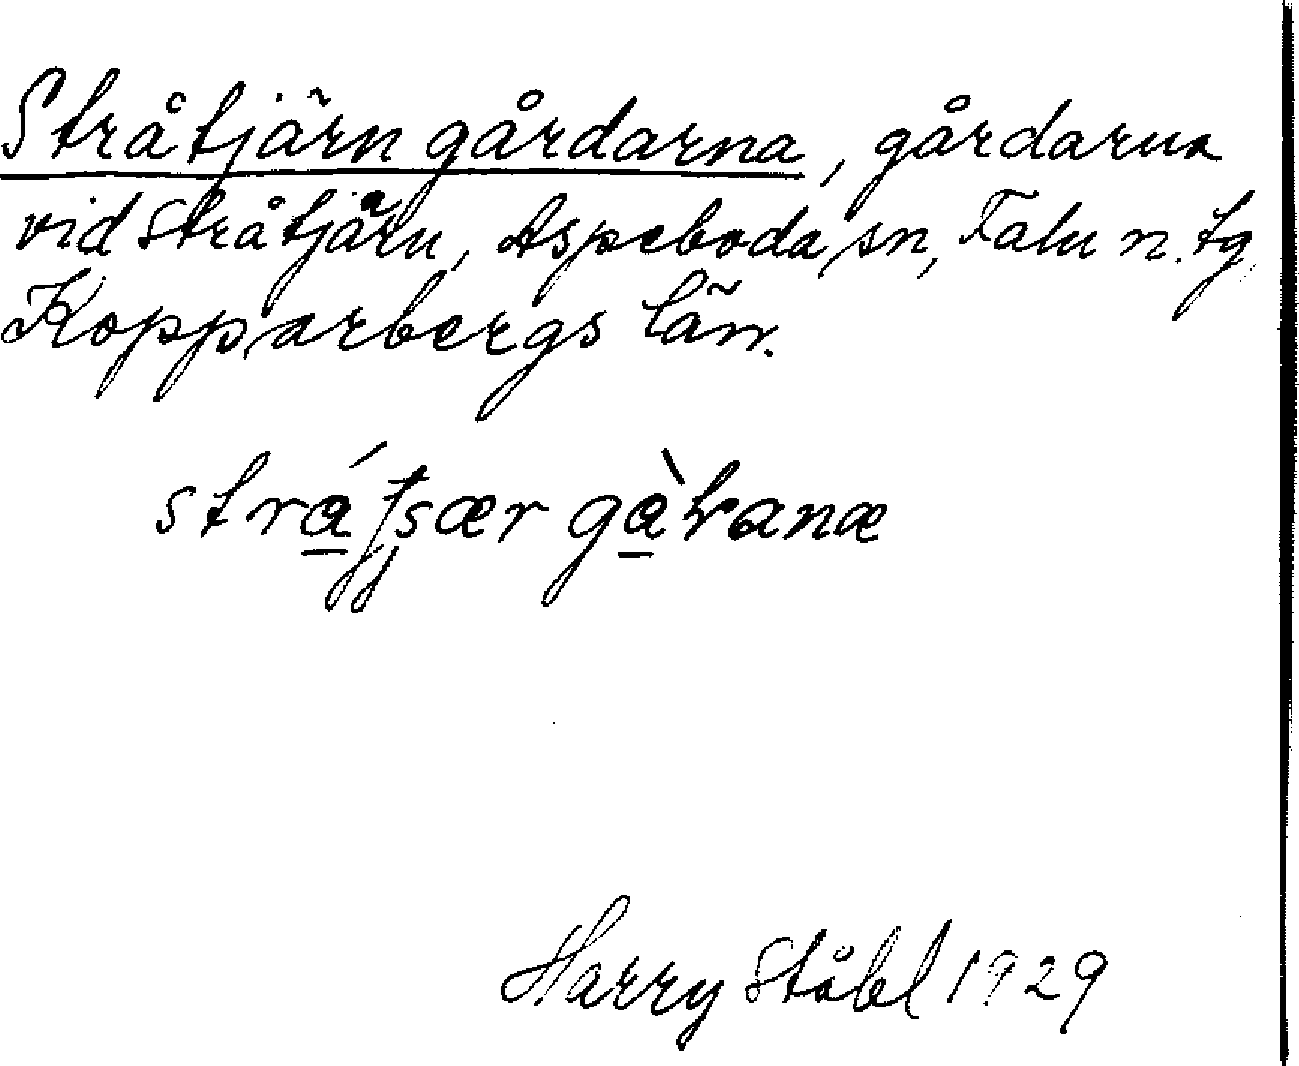 Stråtjärn gårdarna, gårdarna
vid Stråtjärn, Aspeboda sn, Falu n. tg,
Kopparbergs län.
Harry Ståhl 1929